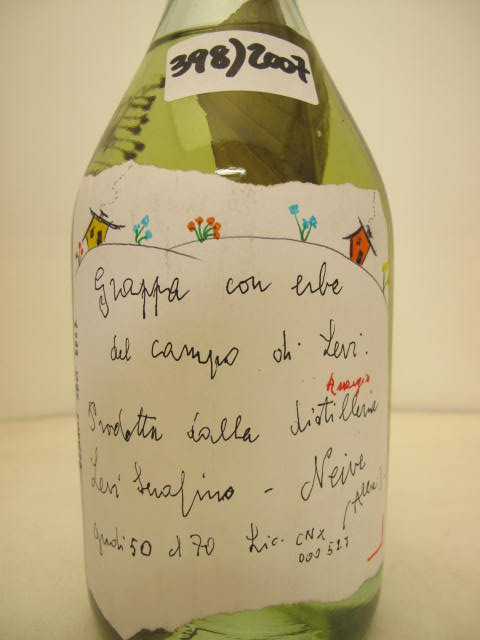 398)2007
Grappa con erbe
del campo di Levi.
Prodotta dalla distilleria
Levi Serafino - Neive
(Alba)
gradi 50 cl 70 Lic. CNX
000 527